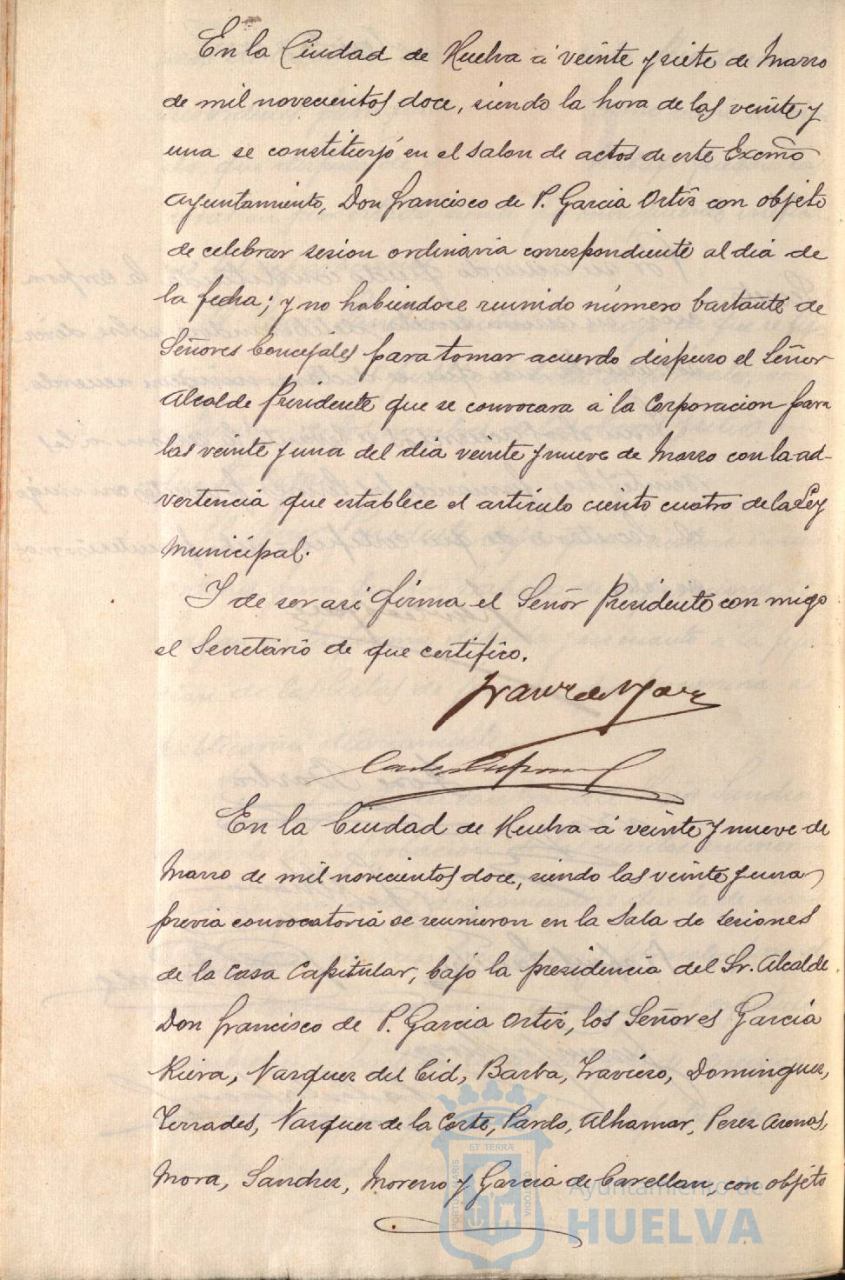 En la Ciudad de Huelva á veinte y siete de Marzo
de mil novecientos doce, siendo la hora de las veinte y
una se constituyó en el salon de actos de este Excmo
Ayuntamiento, Don Francisco de P. Garcia Ortiz con objeto
de celebrar sesion ordinaria correspondiente al dia de
la fecha; y no habiendose reunido número bastante de
Señores Concejales para tomar acuerdo dispuso el Señor
Alcalde Presidente que se convocara á la Corporacion para
las veinte y una del dia veinte y nueve de Marzo con la ad-
vertencia que establece el articulo ciento cuatro de la Ley
Municipal.
Y de ser asi firma el Señor Presidente con migo
el Secretario de que certifico.
En la Ciudad de Huelva á veinte y nueve de
Marzo de mil novicientos doce, siendo las veinte y una
previa convocatoria se reunieron en la Sala de Sesiones
de la Casa Capitular, bajo la presidencia del Sr. Alcalde
Don Francisco de P. Garcia Ortiz, los Señores Garcia
Riera, Vazquez del Cid, Barba, Traviezo, Dominguez,
Terrades, Vazquez de la Corte, Pardo, Alhamar, Perez Arenas,
Mora, Sanchez, Moreno y Garcia de Cavellan, con objeto
ET TERRA
Ayuntamiento de
HUELVA